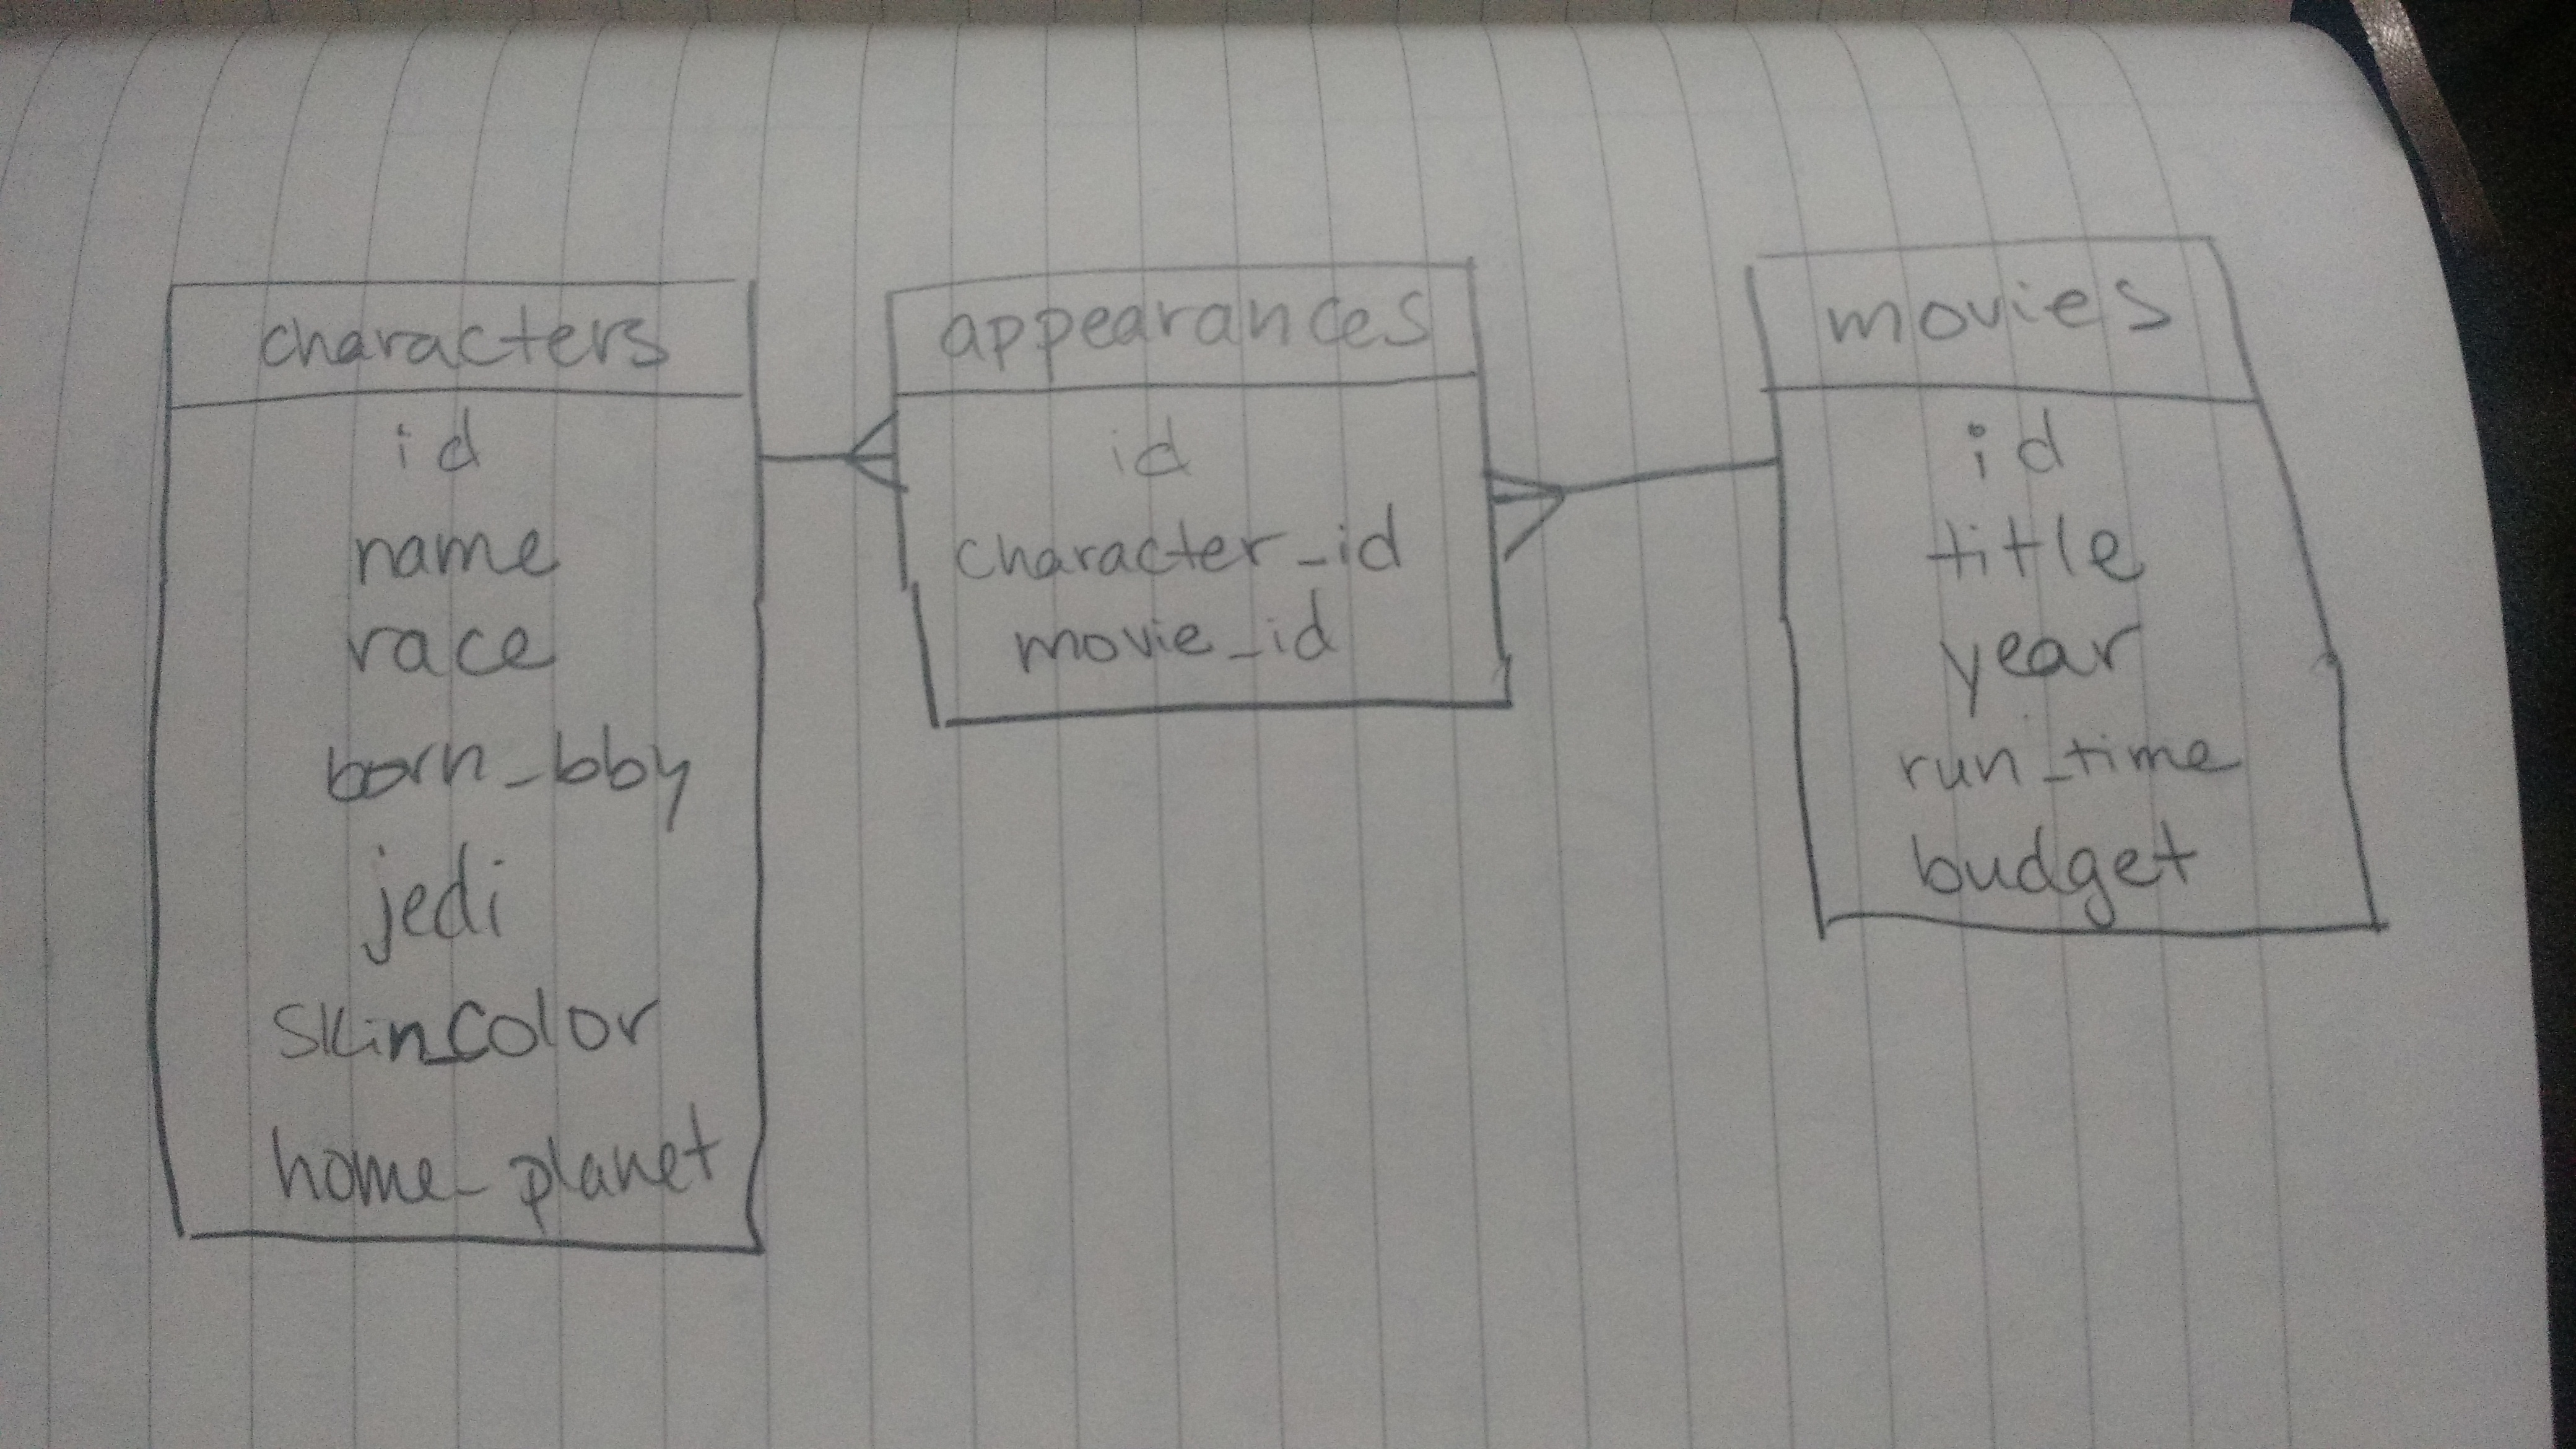 characters
id
name
race
born_bby
jedi
skin_color
home_planet
appearances
id
character_id
movie_id
movies
id
title
year
run_time
budget